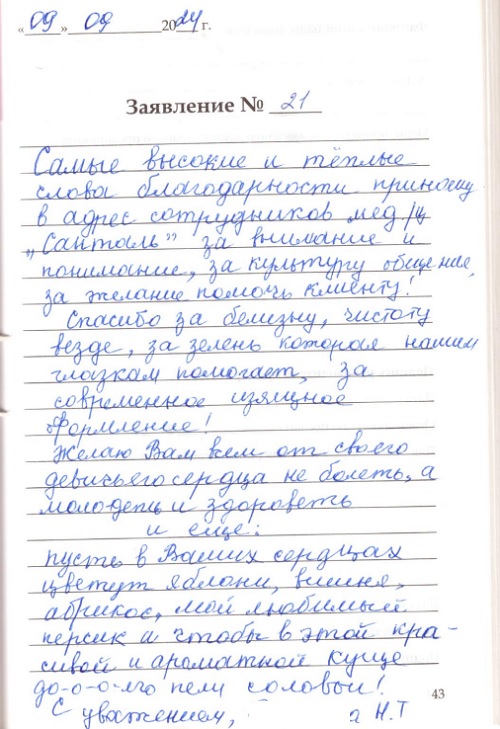 « 09 » 09 2024 г.
Заявление № 21
Самые высокие и тёплые
слова благодарности приношу
в адрес сотрудников мед/ц
„Санталь” за внимание и
понимание, за культуру общения,
за желание помочь клиенту!
Спасибо за белизну, чистоту
везде, за зелень которая нашим
глазкам помогает, за
современное изящное
оформление!
Желаю Вам всем от своего
девичьего сердца не болеть, а
молодеть и здороветь
и еще:
пусть в Ваших сердцах
цветут яблони, вишня,
абрикос, мой любимый
персик и чтобы в этой кра-
сивой и ароматной куще
до-о-о-лго пели соловьи!
43
С уважением, Н.Т